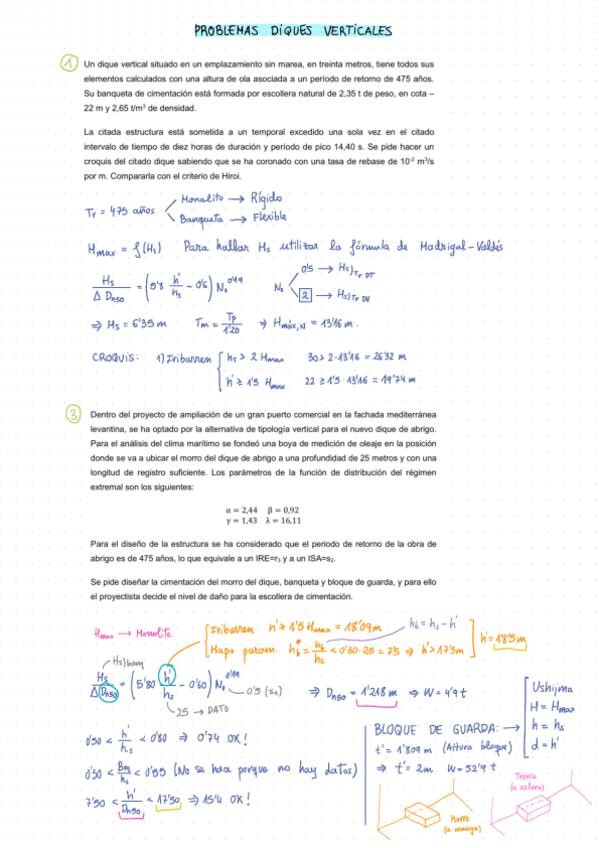 PROBLEMAS DIQUES VERTICALES
1 Un dique vertical situado en un emplazamiento sin marea, en treinta metros, tiene todos sus
elementos calculados con una altura de ola asociada a un período de retorno de 475 años.
Su banqueta de cimentación está formada por escollera natural de 2,35 t de peso, en cota –
22 m y 2,65 t/m³ de densidad.
La citada estructura está sometida a un temporal excedido una sola vez en el citado
intervalo de tiempo de diez horas de duración y período de pico 14,40 s. Se pide hacer un
croquis del citado dique sabiendo que se ha coronado con una tasa de rebase de 10⁻² m³/s
por m. Compararla con el criterio de Hiroi.
Tr = 475 años
Monolito → Rígido
Banqueta → Flexible
Hmax = f(Hs) Para hallar Hs utilizar la fórmula de Madrigal-Valdés
Hs / Δ Dn50 = (5'8 h'/hs - 0'6) No^0'19
No
0'5 → Hs)Tr DT
2 → Hs)Tr DV
⇒ Hs = 6'35 m Tm = Tp/1'20 ⇒ Hmáx,N = 13'16 m.
CROQUIS: 1) Iribarren
hs > 2 Hmax 30 > 2·13'16 = 26'32 m
h' ≥ 1'5 Hmax 22 ≥ 1'5·13'16 = 19'74 m.
3 Dentro del proyecto de ampliación de un gran puerto comercial en la fachada mediterránea
levantina, se ha optado por la alternativa de tipología vertical para el nuevo dique de abrigo.
Para el análisis del clima marítimo se fondeó una boya de medición de oleaje en la posición
donde se va a ubicar el morro del dique de abrigo a una profundidad de 25 metros y con una
longitud de registro suficiente. Los parámetros de la función de distribución del régimen
extremal son los siguientes:
α = 2,44 β = 0,92
γ = 1,43 λ = 16,11
Para el diseño de la estructura se ha considerado que el periodo de retorno de la obra de
abrigo es de 475 años, lo que equivale a un IRE=r₃ y a un ISA=s₂.
Se pide diseñar la cimentación del morro del dique, banqueta y bloque de guarda, y para ello
el proyectista decide el nivel de daño para la escollera de cimentación.
Hmax → Monolito.
Iribarren h' ≥ 1'5 Hmax = 18'09 m
hb = hs - h'
Mapa param. hb* = hb/hs < 0'30·25 = 7'5 ⇒ h' > 17'5 m
h' = 18'5 m
Hs / Δ Dn50 = (5'80 h'/hs - 0'60) No^0'19
0'5 (s2)
25 → DATO
⇒ Dn50 = 1'218 m ⇒ W = 4'9 t
0'50 < h'/hs < 0'80 ⇒ 0'74 OK!
0'30 < /hs < 0'55 (No se hace porque no hay datos)
7'50 < h'/Dn50 < 17'50 ⇒ 15'4 OK!
BLOQUE DE GUARDA: →
t' = 1'809 m (Altura bloque)
⇒ t' = 2m W = 52'9 t
Ushijima
H = Hmax
h = hs
d = h'
Morro
Tronco